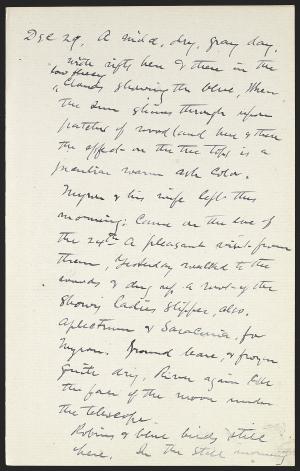 Dec 29, A mild, dry, gray day,
with rifts here & there in the
low fleecy
clouds showing the blue, When
the sun shines through upon
patches of woodland here & there
the effect on the tree tops is a
peculiar warm ash color.
Myron & his wife left this
morning; Came on the eve of
the 24th A pleasant visit from
them, Yesterday walked to the
woods & dug up a root of the
Showy Ladies slipper, also,
Aplectrum & Saracenia, for
Myron. Ground bare, & frozen
quite dry. River again like
the face of the moon under
the telescope.
Robins & blue birds still
here. In the still morning